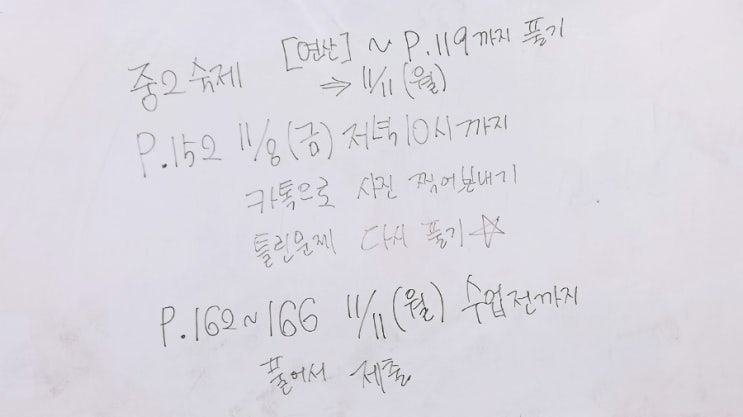 중2 숙제 [연산] ~ P.119까지 풀기
⇒ 11/11 (월)
P.152 11/8(금) 저녁10시까지
카톡으로 사진 찍어보내기
틀린문제 다시 풀기☆
P.162~166 11/11(월) 수업전까지
풀어서 제출